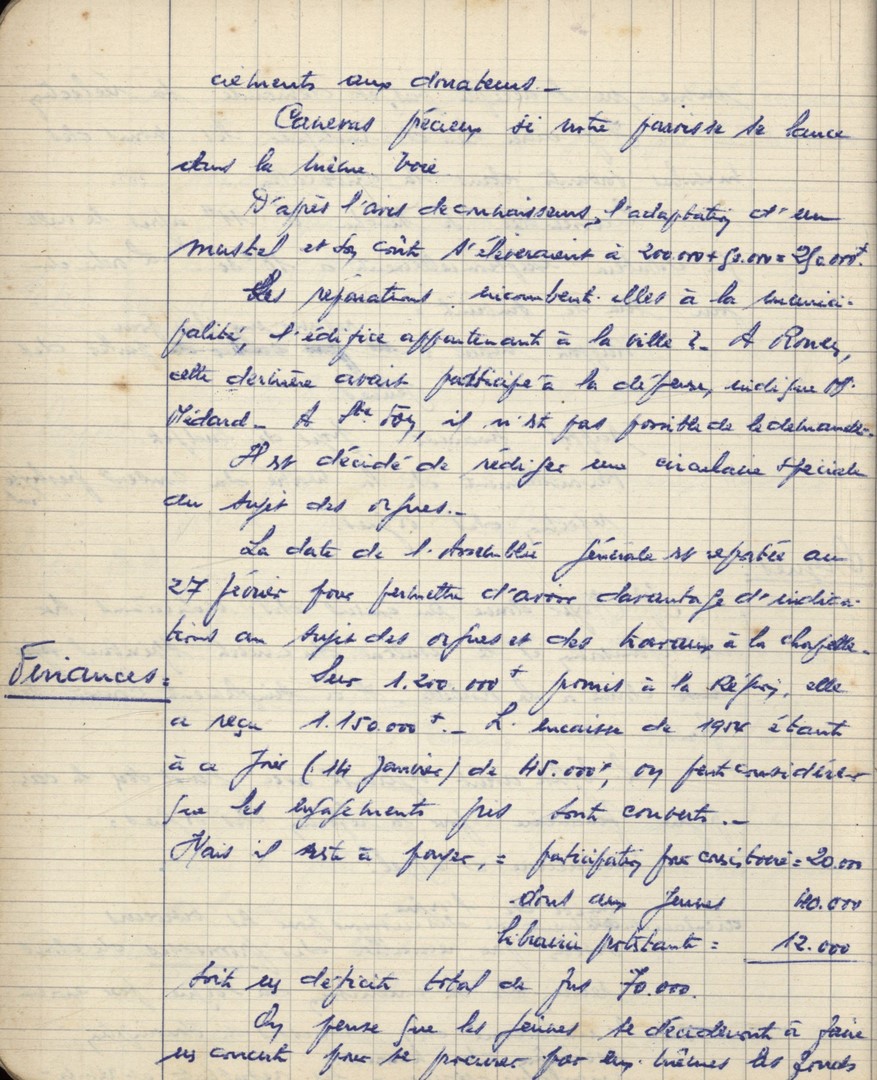 ciements aux donateurs._
Caneras précieux si notre paroisse se lance
dans la même voie
D'après l'avis de connaisseurs, l'adaptation d'un
mustel et son coût s'élèveraient à 200.000 + 50.000 = 250.000f.
Les réparations incombent-elles à la munici-
palité, l'édifice appartenant à la ville ?_ A Rouen,
cette dernière avait participé à la dépense, indique Mr.
Médard._ A Ste Foy, il n'est pas possible de le demander._
Il est décidé de rédiger une circulaire spéciale
au sujet des orgues._
La date de l'Assemblée générale est reportée au
27 février pour permettre d'avoir davantage d'indica-
tions au sujet des orgues et des travaux à la chapelle._
Finances =
Sur 1.200.000f promis à la Région, elle
a reçu 1.150.000f._ L'encaisse de 1954 étant
à ce jour (14 Janvier) de 45.000f, on peut considérer
que les engagements pris sont couverts._
Mais il reste à payer, = participation pour consistoire = 20.000
dons aux jeunes 40.000
librairie protestante = 12.000
Soit un déficit total de 70.000.
On pense que les jeunes se décideront à faire
un concert pour se procurer par eux-mêmes les fonds